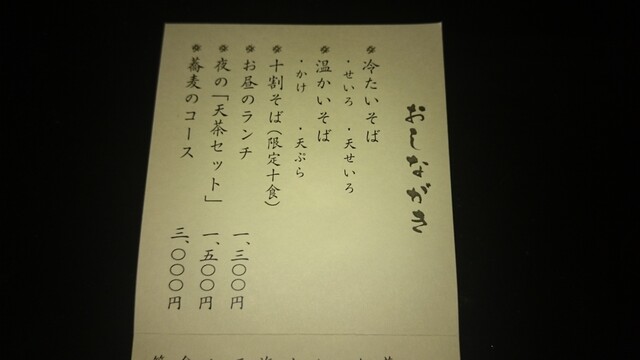 おしながき
冷たいそば
・せいろ ・天せいろ
温かいそば
・かけ ・天ぷら
十割そば（限定十食）
お昼のランチ 一、三〇〇円
夜の「天茶セット」 一、五〇〇円
蕎麦のコース 三、〇〇〇円